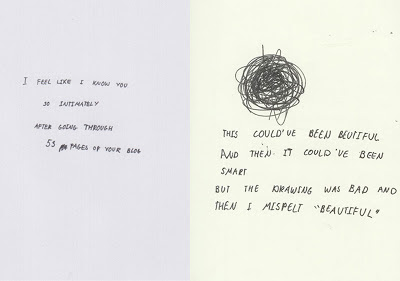 I FEEL LIKE I KNOW YOU
SO INTIMATELY
AFTER GOING THROUGH
53 PAGES OF YOUR BLOG
THIS COULD'VE BEEN BEUTIFUL
AND THEN IT COULD'VE BEEN
SMART
BUT THE DRAWING WAS BAD AND
THEN I MISPELT "BEAUTIFUL"